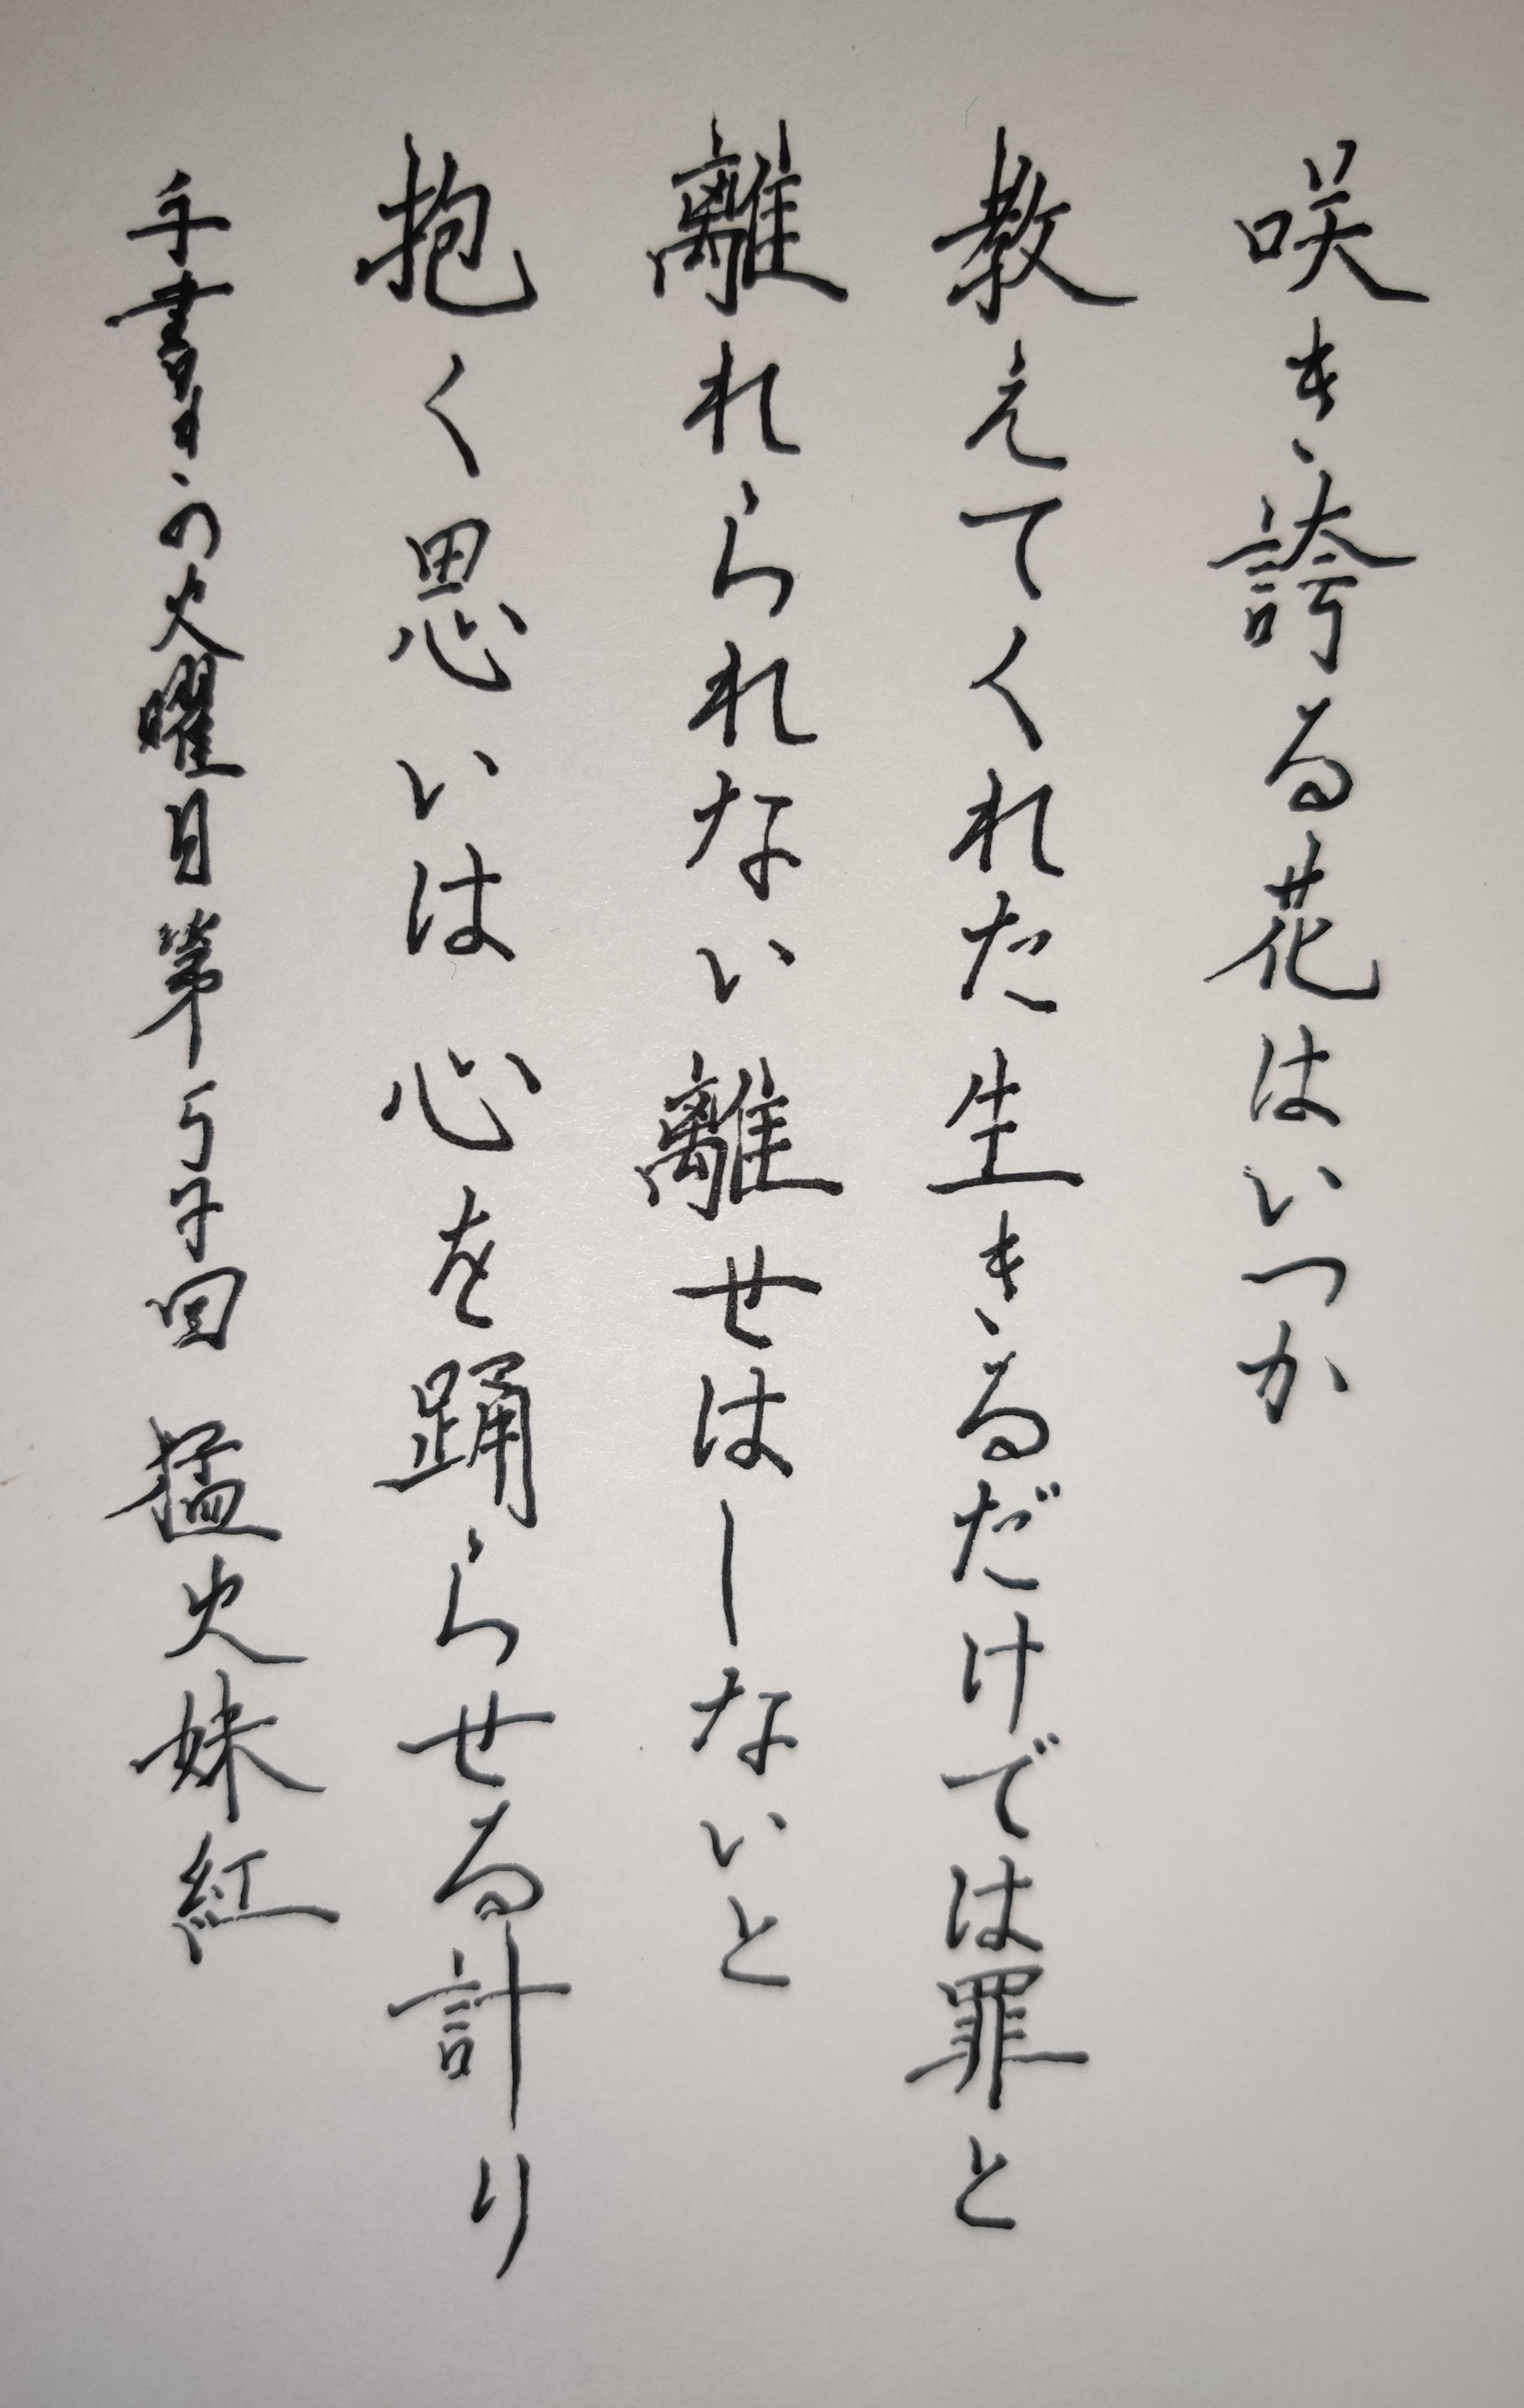 咲き誇る花はいつか
教えてくれた生きるだけでは罪と
離れられない離せはしないと
抱く思いは心を踊らせる計り
手書きの火曜日第回 猛火妹紅